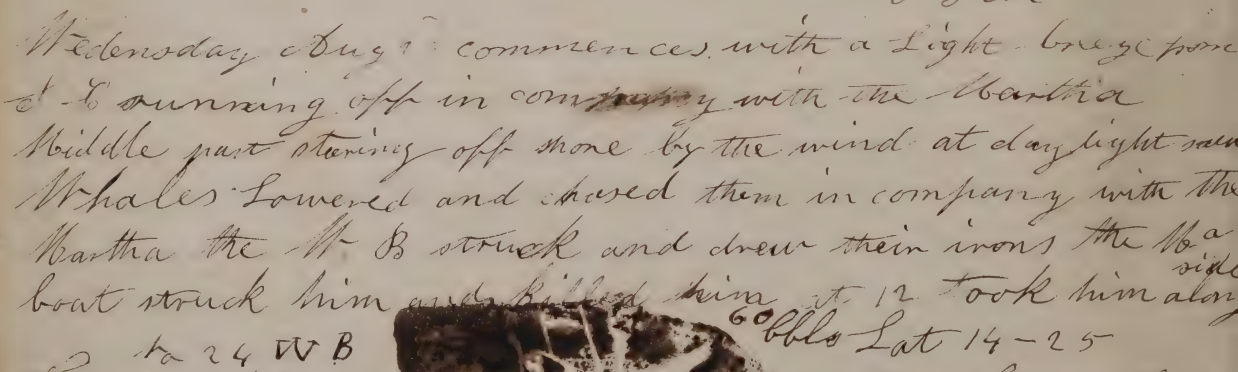 Wedensday Aug commences with a Light breeze from
running off in company with the Martha
Middle part stering off shore by the wind at daylight saw
Whales Lowered and chased them in company with the
Martha the W B struck and drew their irons the Ma
boat struck him and killed him at 12 Took him along side
60 bbls Lat 14-25
24 W B